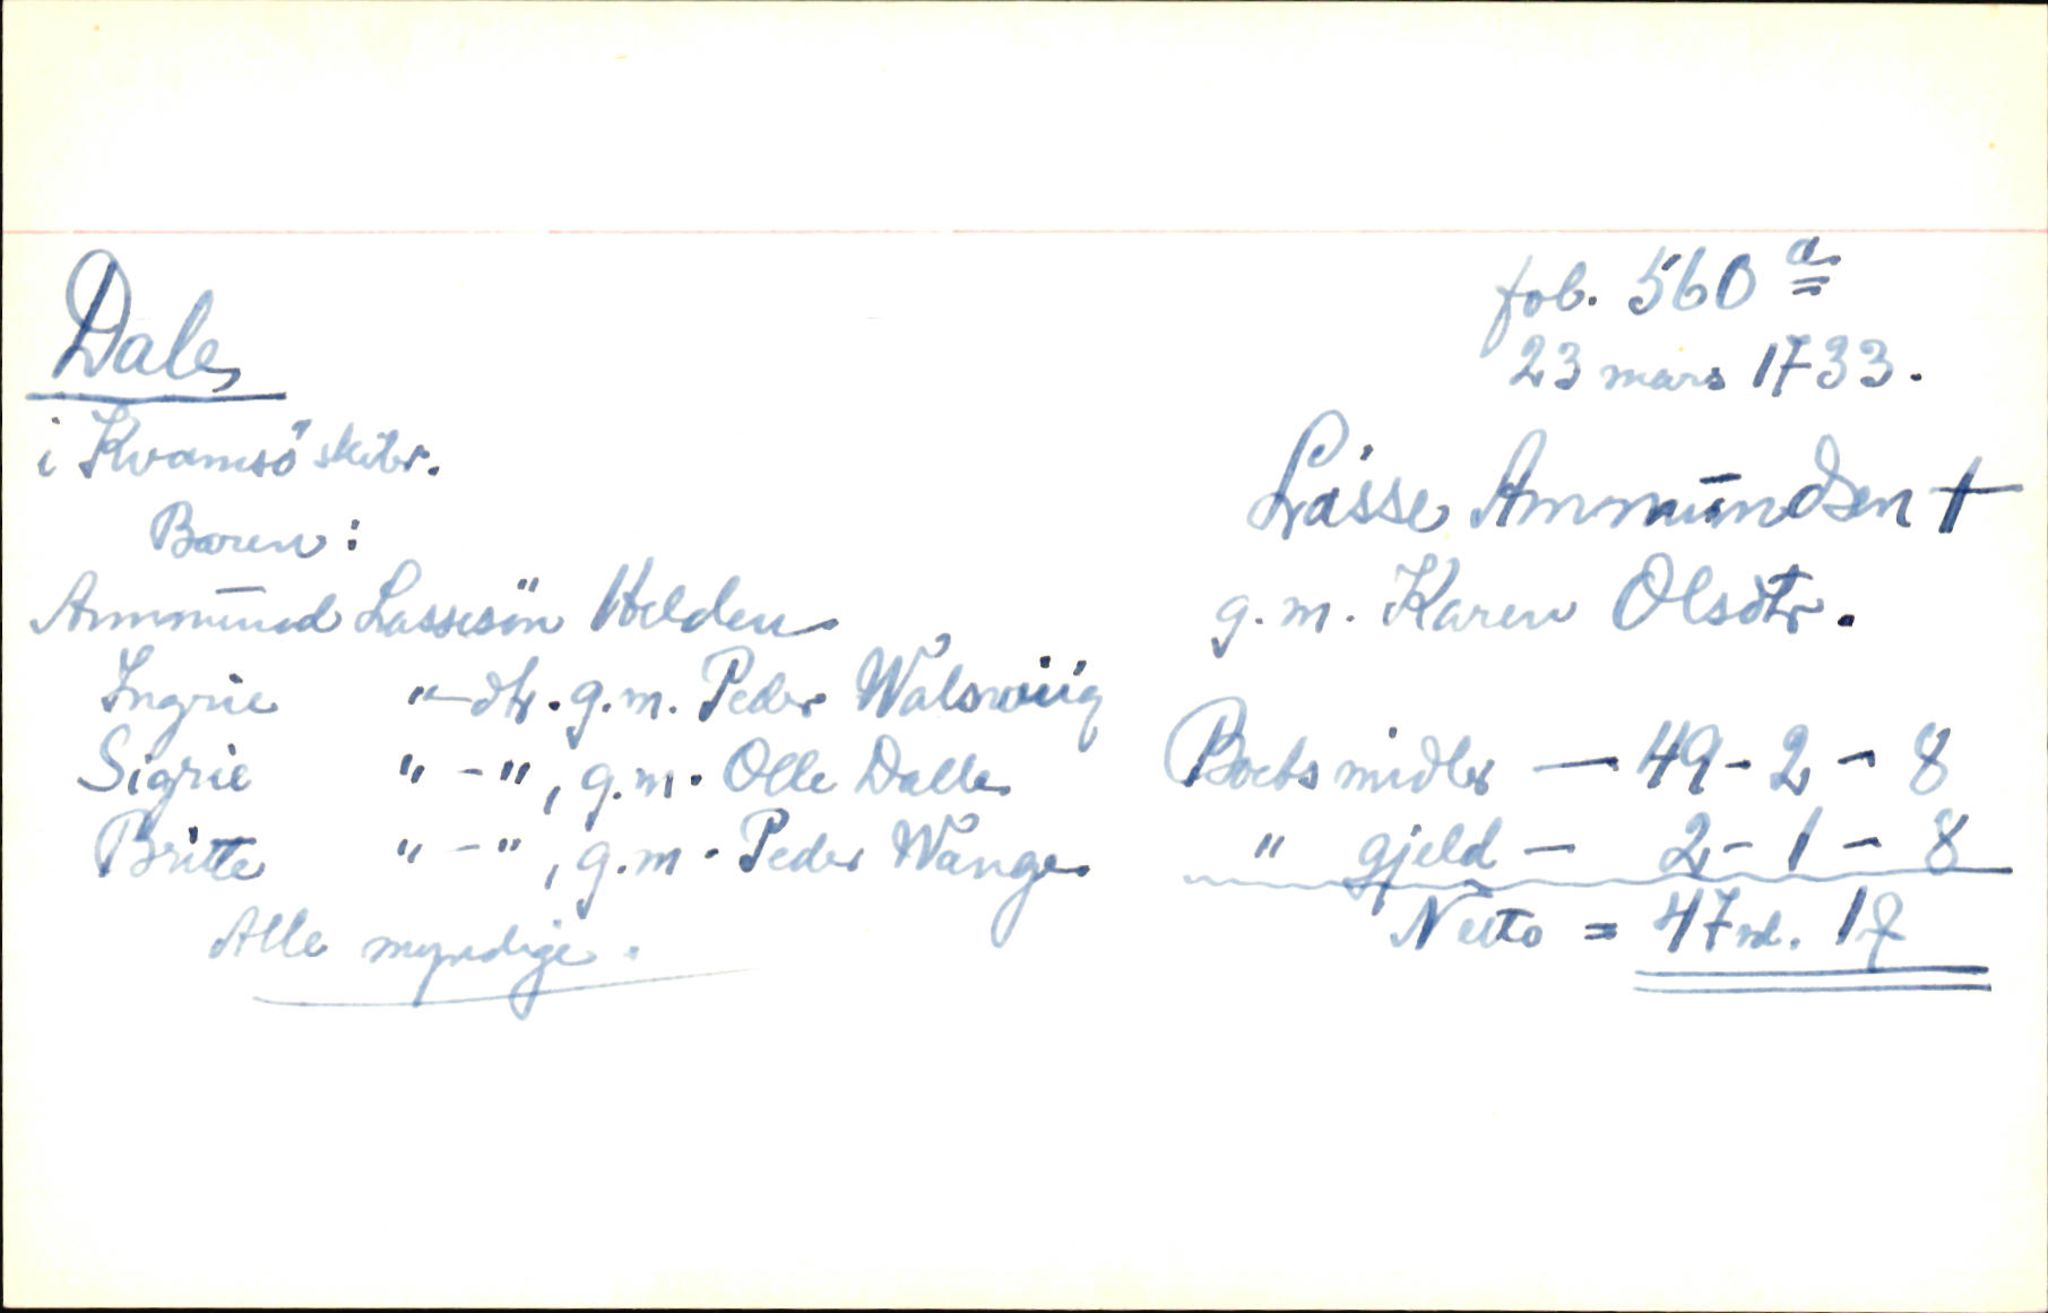 fol. 560 a
23 mars 1733.
Dale,
i Kvamsö skibr.
Lasse Ammundsen †
g.m. Karen Olsdtr.
Baren:
Ammund Lassesön Helden
Ingrie "-dtr. g.m. Peder Walswiig
Sigrie " - ", g.m. Olle Dalle
Britte " - ", g.m. Peder Wange
Alle myndige.
Boets midler — 49 - 2 - 8
" gjeld — 2 - 1 - 8
Netto = 47 rd. 1